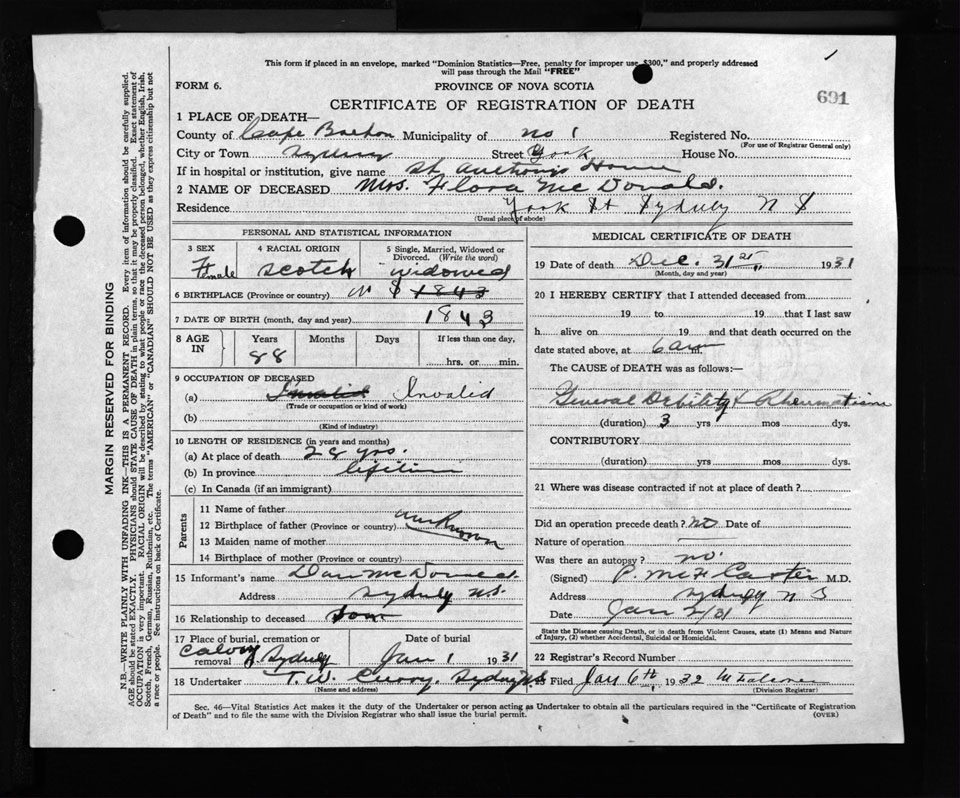 1
This form if placed in an envelope, marked "Dominion Statistics—Free, penalty for improper use $300," and properly addressed
will pass through the Mail "FREE"
FORM 6.
PROVINCE OF NOVA SCOTIA
691
CERTIFICATE OF REGISTRATION OF DEATH
1 PLACE OF DEATH—
County of Cape Breton Municipality of No 1 Registered No.
(For use of Registrar General only)
City or Town Sydney Street York House No.
If in hospital or institution, give name St Anthony's Home
2 NAME OF DECEASED Mrs. Flora McDonald.
Residence York St Sydney N S
(Usual place of abode)
PERSONAL AND STATISTICAL INFORMATION
3 SEX
Female
4 RACIAL ORIGIN
Scotch
5 Single, Married, Widowed or
Divorced. (Write the word)
widowed
6 BIRTHPLACE (Province or country) N S 1843
7 DATE OF BIRTH (month, day and year) 1843
8 AGE
IN
Years
88
Months
Days
If less than one day,
hrs. or min.
9 OCCUPATION OF DECEASED
(a) Invalid Invalid
(Trade or occupation or kind of work)
(b)
(Kind of industry)
10 LENGTH OF RESIDENCE (in years and months)
(a) At place of death 28 yrs.
(b) In province lifetime
(c) In Canada (if an immigrant)
Parents
11 Name of father
12 Birthplace of father (Province or country) unknown
13 Maiden name of mother
14 Birthplace of mother (Province or country)
15 Informant's name Dan McDonald.
Address Sydney N.S.
16 Relationship to deceased Son
17 Place of burial, cremation or
removal Calvary Sydney
Date of burial
Jan 1 1931
18 Undertaker T. W. Curry. Sydney N S
(Name and address)
MEDICAL CERTIFICATE OF DEATH
19 Date of death Dec. 31st, 1931
(Month, day and year)
20 I HEREBY CERTIFY that I attended deceased from
19 to 19 that I last saw
h alive on 19 and that death occurred on the
date stated above, at 6 am m.
The CAUSE of DEATH was as follows:—
General Debility & Rheumatism
(duration) 3 yrs mos dys.
CONTRIBUTORY
(duration) yrs. mos. dys.
21 Where was disease contracted if not at place of death?
Did an operation precede death? no Date of
Nature of operation
Was there an autopsy? no.
(Signed) P. McF Carter M.D.
Address Sydney N S
Date Jan 2/31
State the Disease causing Death, or in death from Violent Causes, state (1) Means and Nature
of Injury, (2) whether Accidental, Suicidal or Homicidal.
22 Registrar's Record Number
23 Filed Jan 6th, 1932
(Division Registrar)
Sec. 46—Vital Statistics Act makes it the duty of the Undertaker or person acting as Undertaker to obtain all the particulars required in the "Certificate of Registration
of Death" and to file the same with the Division Registrar who shall issue the burial permit.
(OVER)
MARGIN RESERVED FOR BINDING
N.B.—WRITE PLAINLY WITH UNFADING INK—THIS IS A PERMANENT RECORD. Every item of information should be carefully supplied.
AGE should be stated EXACTLY. PHYSICIANS should STATE CAUSE OF DEATH in plain terms, so that it may be properly classified. Exact statement of
OCCUPATION is very important. RACIAL ORIGIN will be described by stating to what people or race the deceased person belonged, whether English, Irish,
Scotch, French, German, Russian, Ruthenian, etc. The terms "AMERICAN" or "CANADIAN" SHOULD NOT BE USED as they express citizenship but not
a race or people. See instructions on back of Certificate.